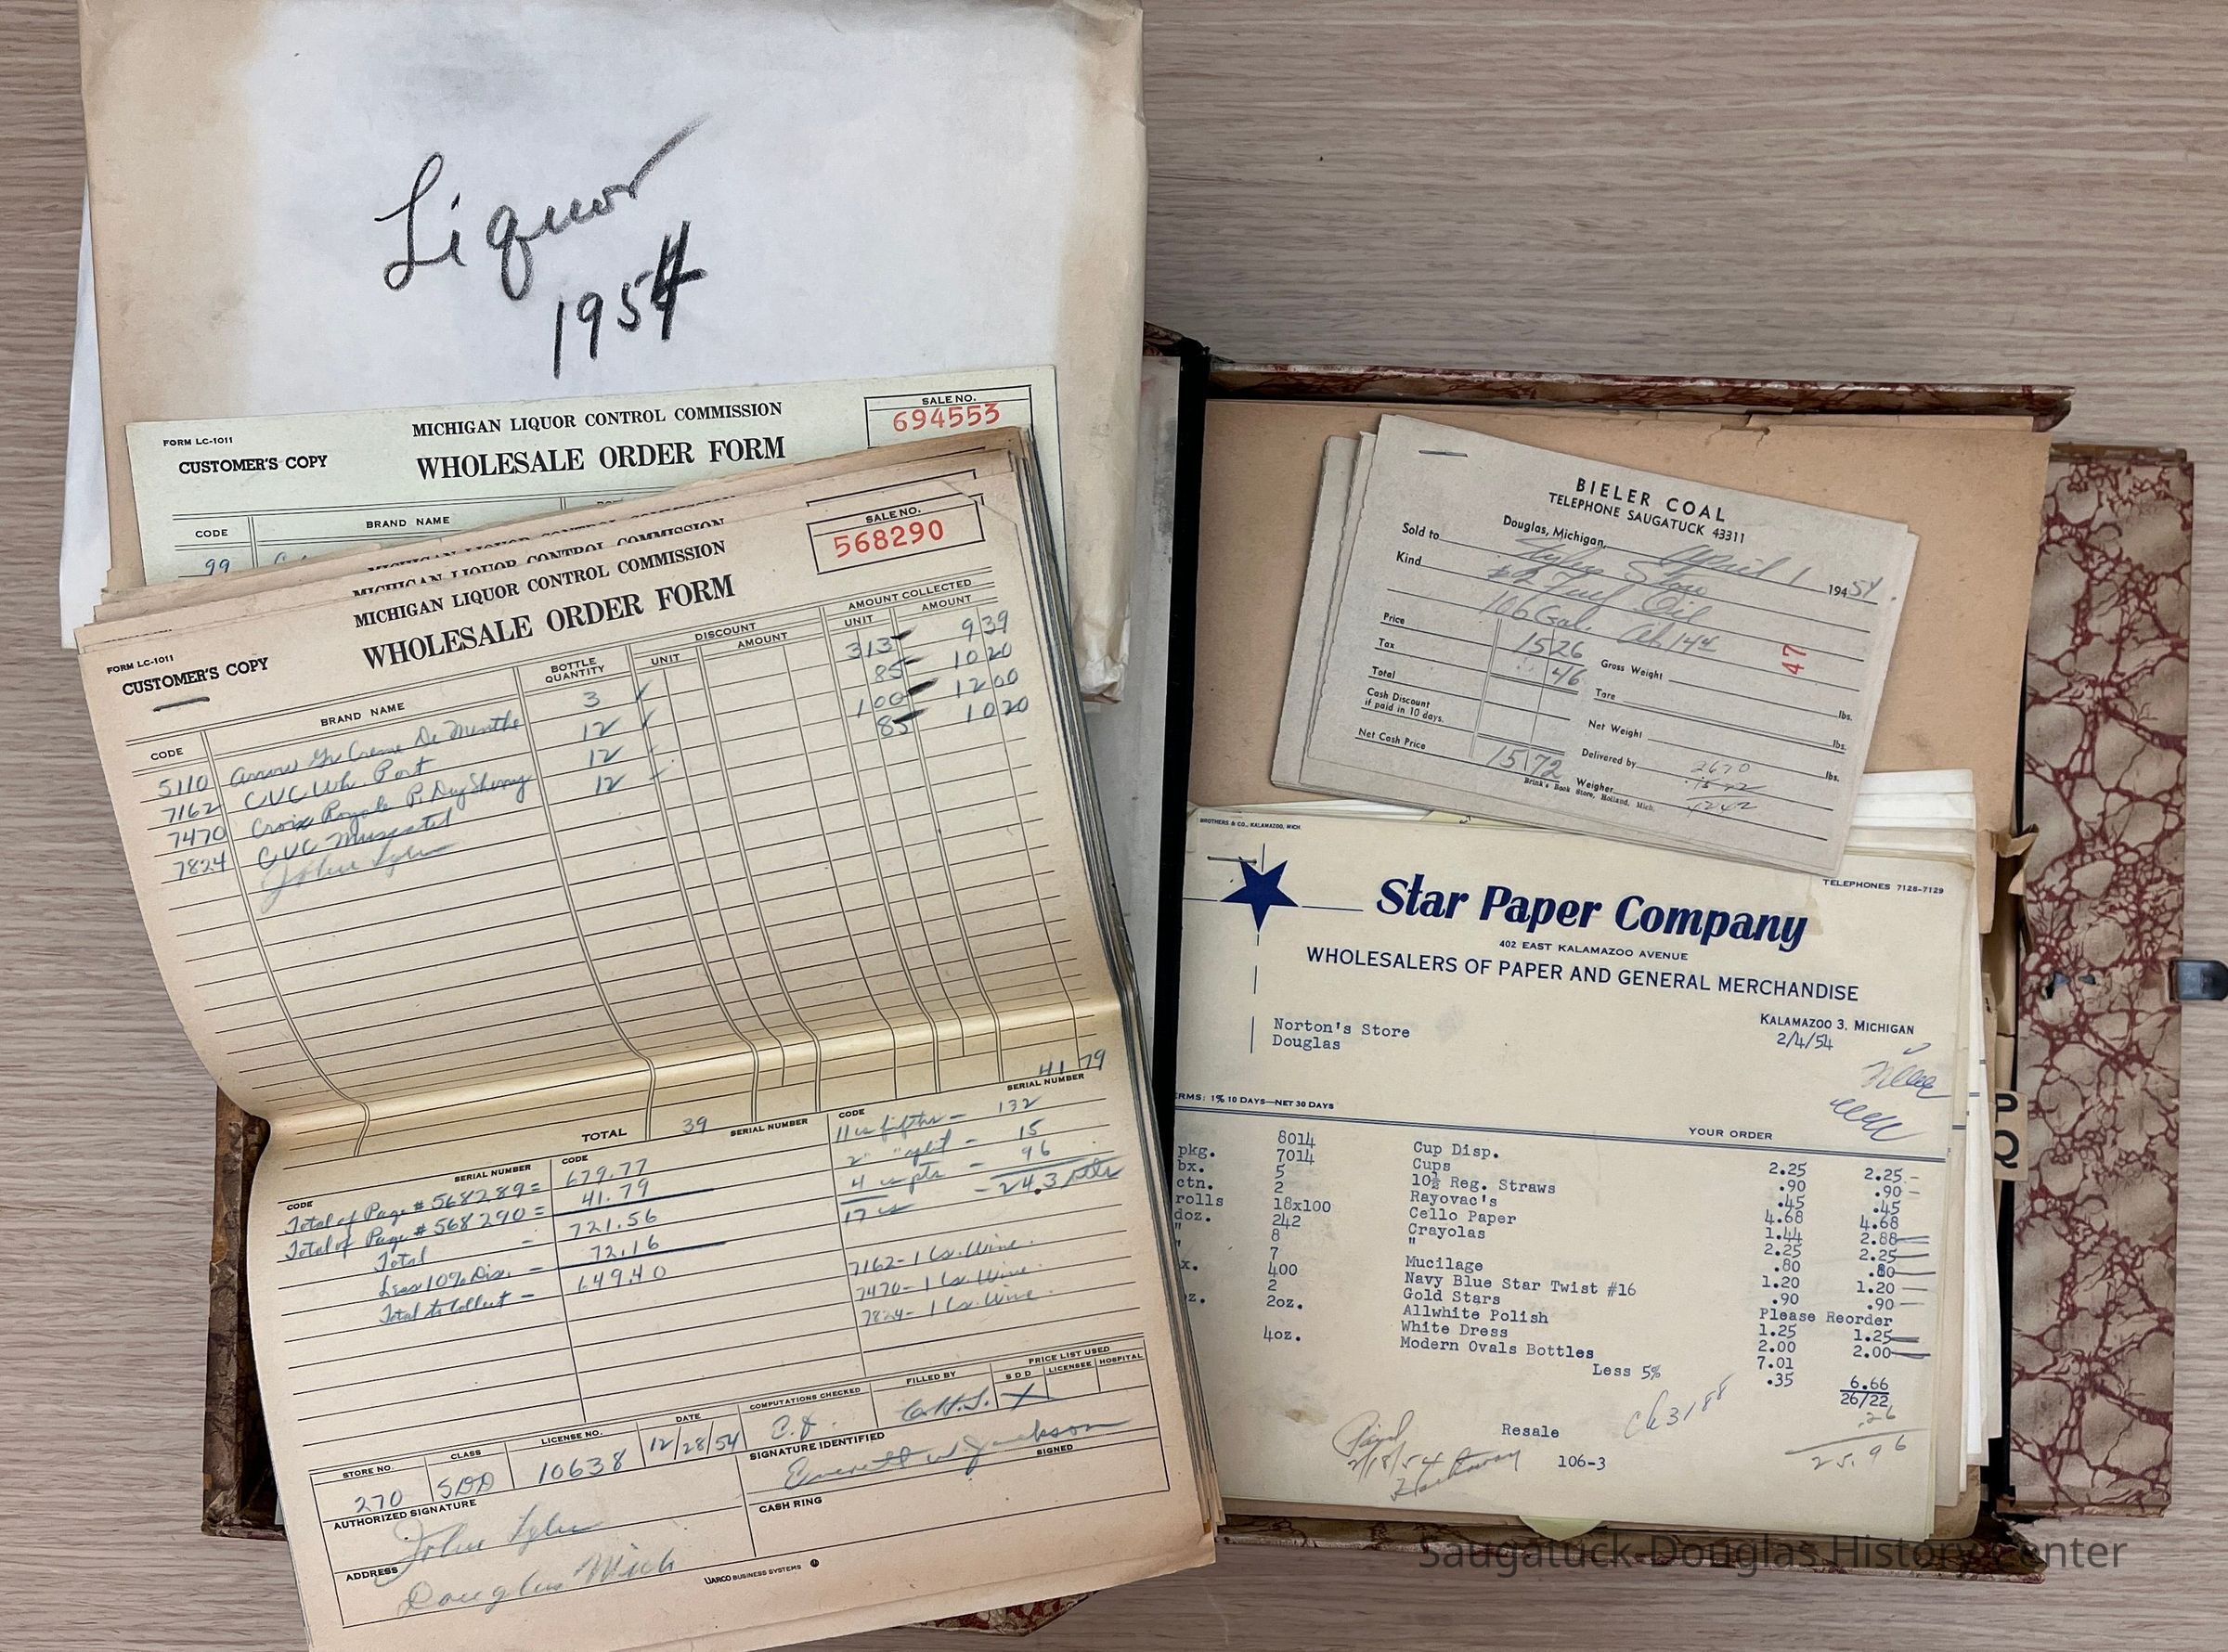 Liquor
1954
FORM LC-1011
CUSTOMER'S COPY
MICHIGAN LIQUOR CONTROL COMMISSION
WHOLESALE ORDER FORM
SALE NO.
694553
CODE BRAND NAME
99
MICHIGAN LIQUOR CONTROL COMMISSION
MICHIGAN LIQUOR CONTROL COMMISSION
WHOLESALE ORDER FORM
SALE NO.
568290
FORM LC-1011
CUSTOMER'S COPY
CODE BRAND NAME BOTTLE QUANTITY DISCOUNT UNIT AMOUNT AMOUNT COLLECTED UNIT AMOUNT
5110 Arrow Gr Creme De Menthe 3 313 9 39
7162 CVC Wh. Port 12 85 10 20
7470 Croix Royale P. Dry Sherry 12 100 12 00
7824 CVC Muscatel 12 85 10 20
John Tyler
41 79
TOTAL 39 SERIAL NUMBER CODE SERIAL NUMBER
CODE SERIAL NUMBER CODE
Total of Page # 568289 = 679.77
Total of Page # 568290 = 41.79
Total - 721.56
Less 10% Dis. - 72.16
Total to Collect - 649.40
11 cs fifths - 132
2 " - 15
4 cs pts - 96
17 cs - 243 btls
7162 - 1 Cs. Wine.
7470 - 1 Cs. Wine.
7824 - 1 Cs. Wine.
STORE NO. CLASS LICENSE NO. DATE COMPUTATIONS CHECKED FILLED BY PRICE LIST USED
SDD LICENSEE HOSPITAL
270 SDD 10638 12/28/54 X
AUTHORIZED SIGNATURE SIGNATURE IDENTIFIED SIGNED
John Tyler
Everett W Jackson
CASH RING
ADDRESS
Douglas Mich
UARCO BUSINESS SYSTEMS
BIELER COAL
TELEPHONE SAUGATUCK 43311
Douglas, Michigan, April 1 1954
Sold to Tyler Store
Kind #2 Fuel Oil
106 Gal. @ 144
47
Price 15 26 Gross Weight lbs.
Tax 46 Tare lbs.
Total Net Weight lbs.
Cash Discount
if paid in 10 days. Delivered by
Net Cash Price 15 72 Weigher
Brink's Book Store, Holland, Mich.
BROTHERS & CO., KALAMAZOO, MICH.
TELEPHONES 7128-7129
Star Paper Company
402 EAST KALAMAZOO AVENUE
WHOLESALERS OF PAPER AND GENERAL MERCHANDISE
KALAMAZOO 3, MICHIGAN
Norton's Store
Douglas
2/4/54
ERMS: 1% 10 DAYS—NET 30 DAYS
YOUR ORDER
8014 Cup Disp.
pkg. 7014 Cups 2.25 2.25
bx. 5 10½ Reg. Straws .90 .90
ctn. 2 Rayovac's .45 .45
rolls 18x100 Cello Paper 4.68 4.68
doz. 242 Crayolas 1.44 2.88
" 8 " 2.25 2.25
" 7 Mucilage .80 .80
x. 400 Navy Blue Star Twist #16 1.20 1.20
2 Gold Stars .90 .90
oz. 2oz. Allwhite Polish Please Reorder
White Dress 1.25 1.25
4oz. Modern Ovals Bottles 2.00 2.00
7.01
Less 5% .35 6.66
26/22
.26
25.96
Resale
ck 3188
Paid
2/18/54
Hathaway
106-3
P
Q
Saugatuck-Douglas History Center